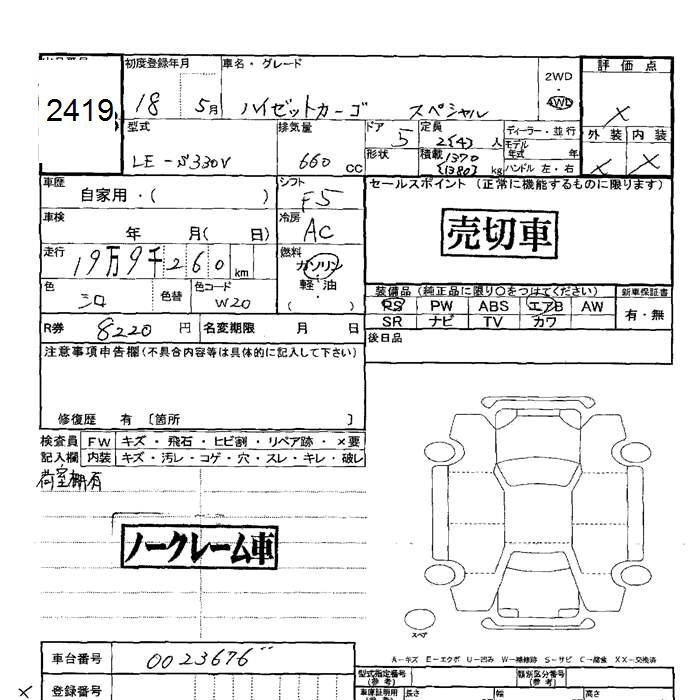 2419
初度登録年月 車名・グレード
18 5月 ハイゼットカーゴ スペシャル
2WD
4WD
評価点
X
外装 内装
X X
型式 排気量 ドア 定員 ディーラー・並行
LE-S330V 660 CC 5 2(4)人 モデル年式 年
形状 積載 1370 {1380} kg ハンドル 左・右
車歴 シフト セールスポイント(正常に機能するものに限ります)
自家用・( ) F5
車検 冷房
年 月( 日) AC
売切車
走行 燃料
19万9千260km ガソリン
軽・油
( )
色 色替 色コード
シロ W20
装備品(純正品に限り○をつけてください) 新車保証書
PS PW ABS エアB AW 有・無
SR ナビ TV カワ
R券 8220円 名変期限 月 日
後日品
注意事項申告欄(不具合内容等は具体的に記入して下さい)
修復歴 有 〔箇所 〕
検査員 FW キズ・飛石・ヒビ割・リペア跡・×要
記入欄 内装 キズ・汚レ・コゲ・穴・スレ・キレ・破レ
荷室棚有
ノークレーム車
スペア
A-キズ E-エクボ U-凹み W-補修跡 S-サビ C-腐食 XX-交換済
車台番号 0023676
型式指定番号(参考) 類別区分番号(参考)
登録番号
長さ 幅 高さ